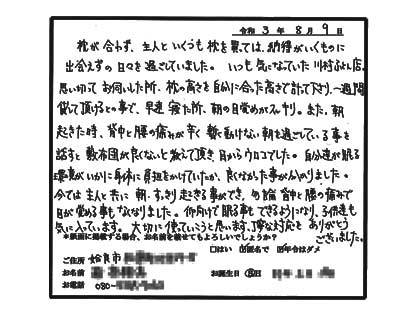 令和 3年 8月 9日
枕が合わず、主人といくつも枕を買っては、納得がいくものに
出会えずの日々を過ごしていました。いつも気になっていた川村ふとん店、
思い切ってお伺いした所、枕の高さを自分に合った高さで計って下さり、一週間
貸して頂けるとの事で、早速寝た所、朝の目覚めがスッキリ。また、朝
起きた時、背中と腰の痛みが辛く暫く動けない朝を過ごしている事を
話すと敷布団が良くないと教えて頂き目からウロコでした。自分達が眠る
環境がいかに身体に負担をかけていたか、良くなかった事が分かりました。
今では主人と共に朝、すっきり起きる事ができ、勿論背中と腰の痛みで
目が覚める事もなくなりました。仰向けで眠る事もできるようになり、子供達も
気に入っています。大切に使っていこうと思います。丁寧な対応をありがとう
ございました。
※紙面に掲載する場合、お名前を載せてもよろしいでしょうか?
□はい ☑匿名で ☑年令はダメ
ご住所 姶良市
お名前
お誕生日
お電話 080-